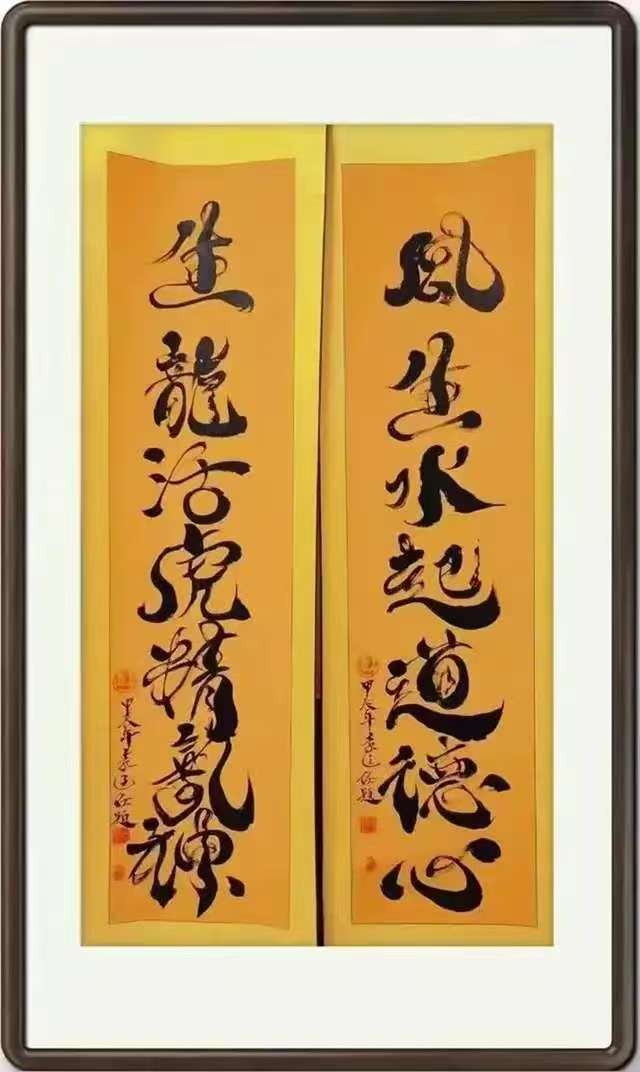 風生水起道德心
甲辰年 題
生龍活虎精氣神
甲辰年 題